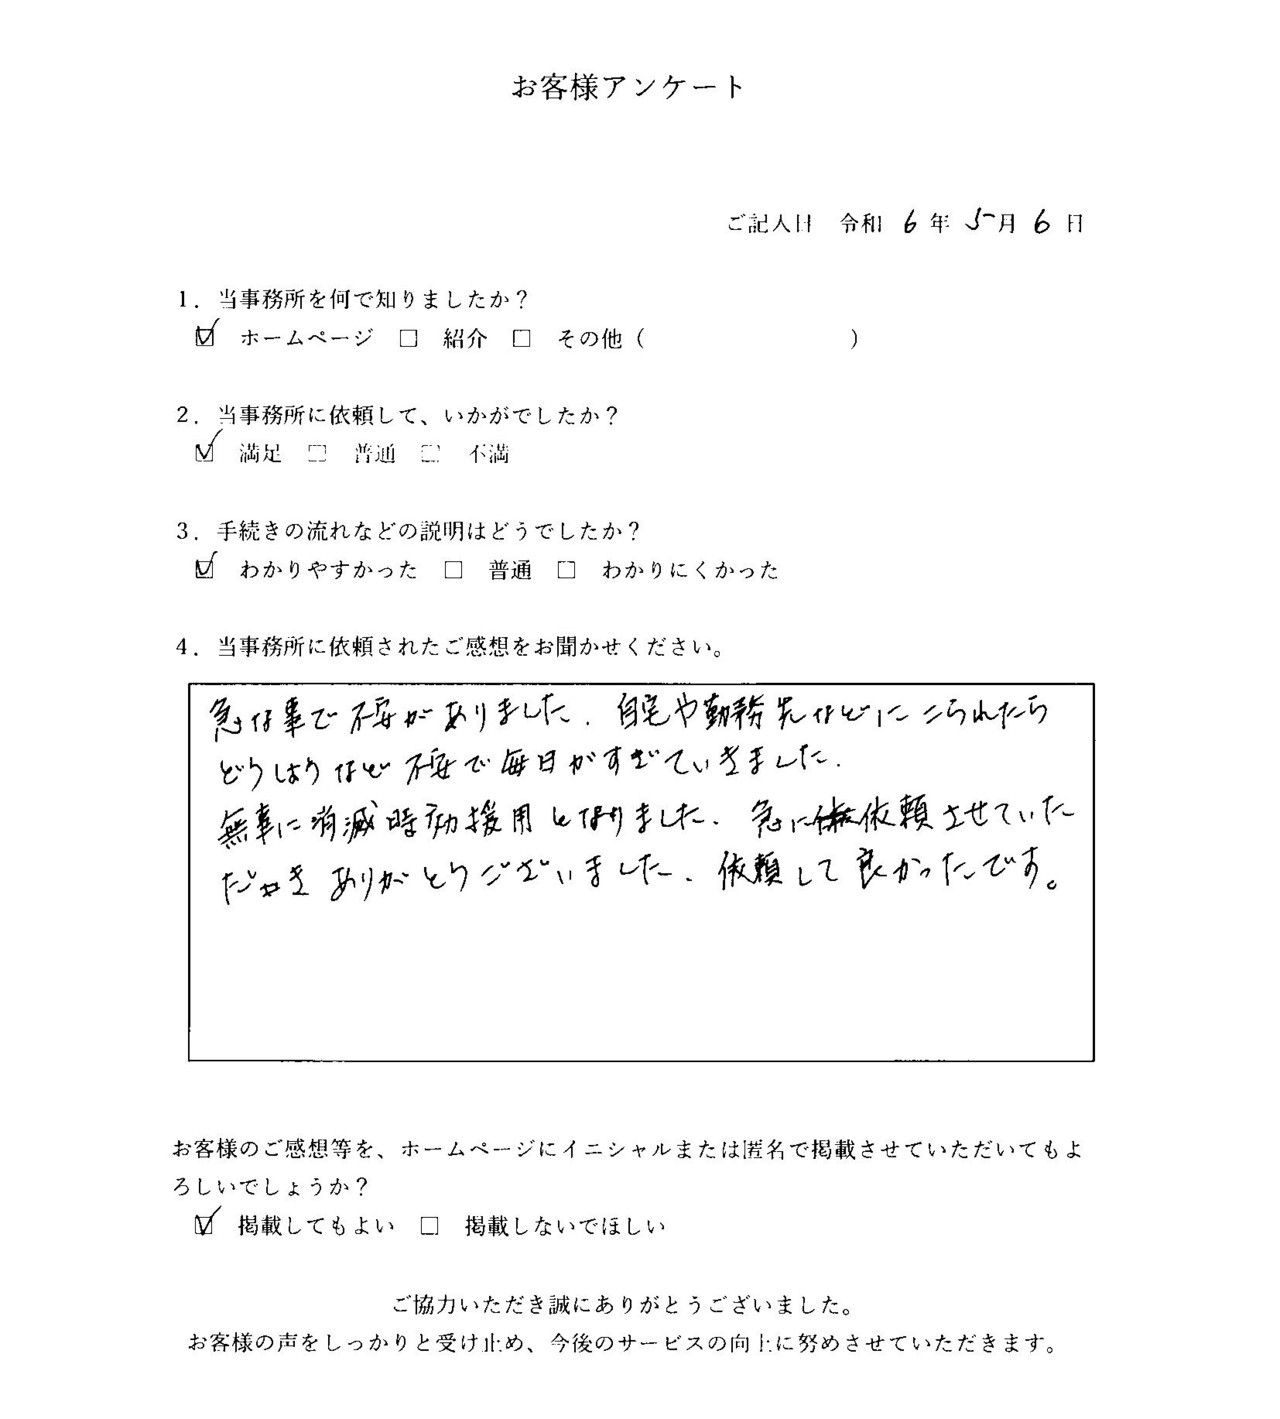 お客様アンケート
ご記入日　令和 6 年 5 月 6 日
1．当事務所を何で知りましたか？
☑ ホームページ □ 紹介 □ その他（　　　　　　　　　）
2．当事務所に依頼して、いかがでしたか？
☑ 満足 □ 普通 □ 不満
3．手続きの流れなどの説明はどうでしたか？
☑ わかりやすかった □ 普通 □ わかりにくかった
4．当事務所に依頼されたご感想をお聞かせください。
急な事で不安がありました. 自宅や勤務先などにこられたら
どうしようなど不安で毎日がすぎていきました.
無事に消滅時効援用となりました. 急に依頼させていた
だき ありがとうございました. 依頼して良かったです。
お客様のご感想等を、ホームページにイニシャルまたは匿名で掲載させていただいてもよ
ろしいでしょうか？
☑ 掲載してもよい □ 掲載しないでほしい
ご協力いただき誠にありがとうございました。
お客様の声をしっかりと受け止め、今後のサービスの向上に努めさせていただきます。